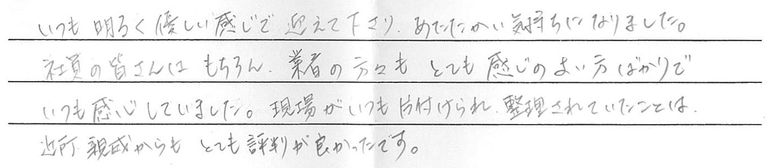 いつも明るく優しい感じで迎えて下さり、あたたかい気持ちになりました。
社員の皆さんはもちろん、業者の方々もとても感じのよい方ばかりで
いつも感心していました。現場がいつも片付けられ、整理されていたことは、
近所、親戚からもとても評判が良かったです。